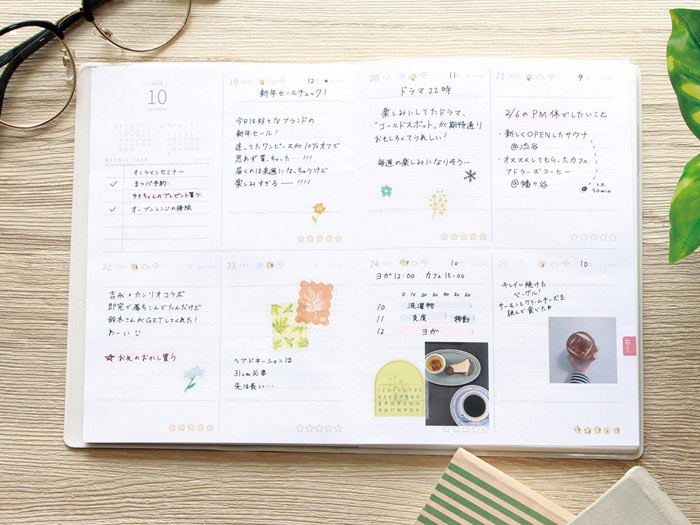 10
OCTOBER
WEEKLY TASK
オンラインセミナー
まつパ予約!
ゆきちゃんのプレゼント買う
オーブンレンジの掃除
19
12
新年セールチェック!
今日は好きなブランドの
新年セール!
迷ってたワンピースが10%オフで
思わず買っちゃったー!!!
届くのは来週になっちゃうけど
楽しみすぎるー!!!!
20
11
ドラマ 22時
楽しみにしてたドラマ、
"ゴールドスポット"が期待通り
おもしろくてうれしい!
毎週の楽しみになりそうー
21
9
2/6のPM休でしたいこと
・新しくOPENしたサウナ
@渋谷
・オススメしてもらったカフェ
アドラーズコーヒー
@幡ヶ谷
22
吉永×カンリオコラボ
即完で落ちこんでたんだけど
鈴木さんがGETしてくれた!
わーい
お礼のおかし買う
23
ヘアドネーションは
31cm必要
先は長い…
24
10
ヨガ 12:00 カフェ 15:00
0 10 20 30 40 50 60
10 洗濯物
11 支度 移動
12 ヨガ
25
10
キレイに焼けた
ベーグル!
サーモンとクリームチーズを
挟んで食べた
10